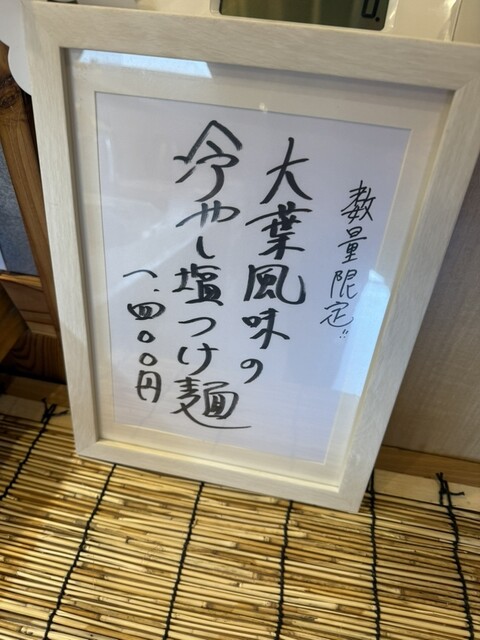 数量限定!!
大葉風味の
冷やし塩つけ麺
一、四〇〇円